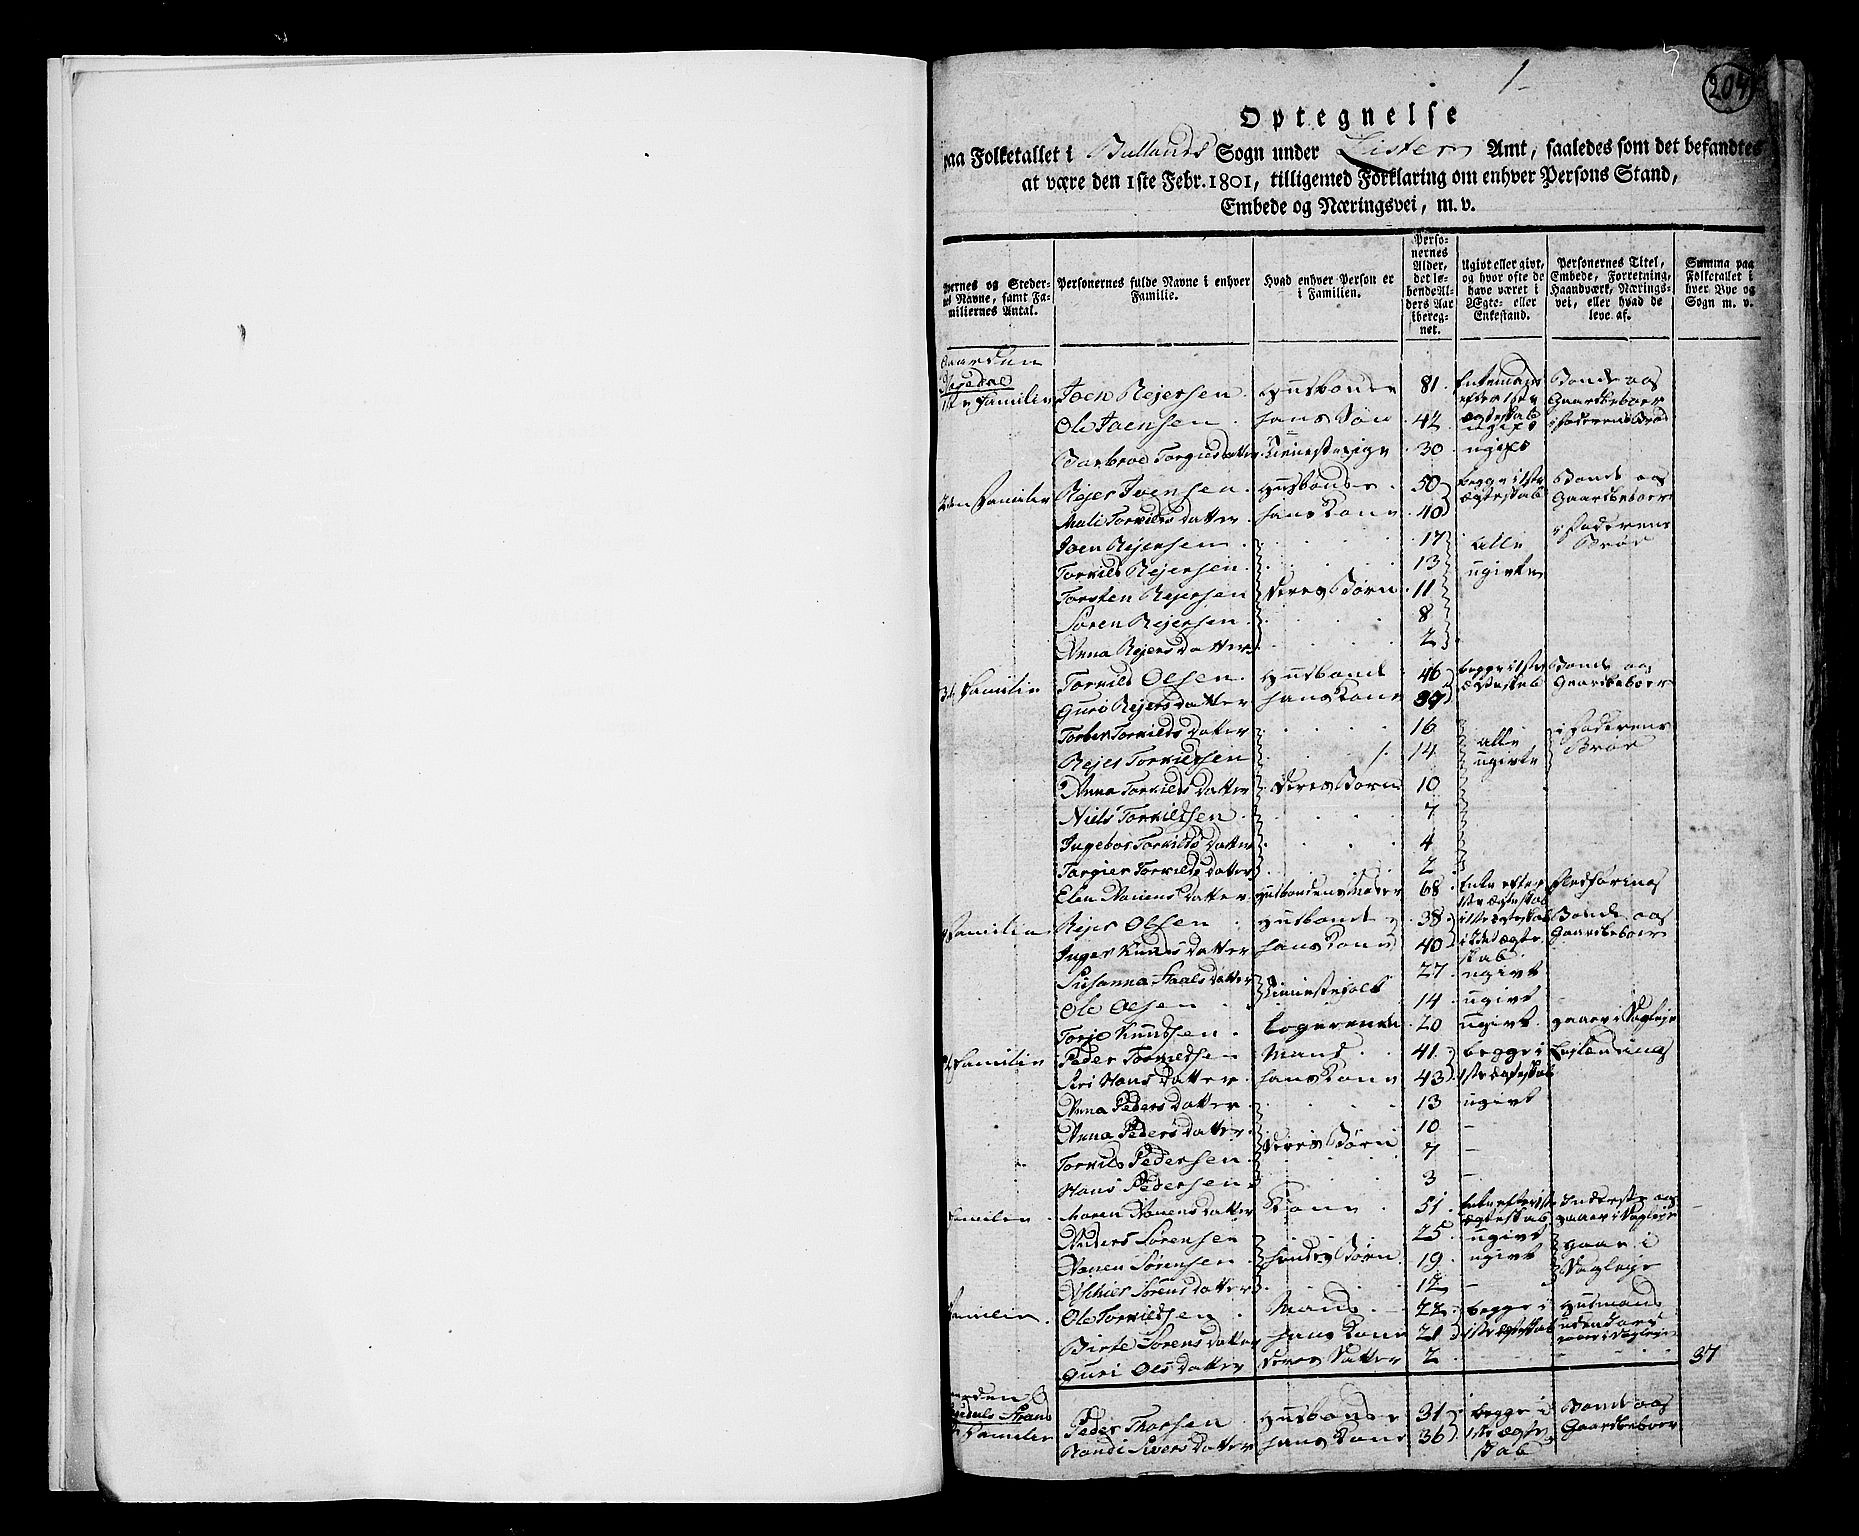 1
204
Optegnelse
paa Folketallet i Bellands Sogn under Lister Amt, saaledes som det befandtes
at være den 1ste Febr. 1801, tilligemed Forklaring om enhver Persons Stand,
Embede og Næringsvei, m. v.
Byernes og Steder-
nes Navne, samt Fa-
miliernes Antal.
Personernes fulde Navne i enhver
Familie.
Hvad enhver Person er
i Familien.
Perso-
nernes
Alder,
det lø-
bende Al-
ders Aar
iberegnet.
Ugivt eller givt,
og hvor ofte de
have været i
Ægte- eller
Enkestand.
Personernes Titel,
Embede, Forretning,
Haandværk, Nærings-
vei, eller hvad de
leve af.
Summa paa
Folketallet i
hver Bye og
Sogn m. v.
Gaarden
1ste Familie Joen Rejersen Husbonde 81 Enkemand efter 1ste Ægteskab Bonde og Gaardbeboer
Ole Joensen hans Søn 42 ugift i Faderens Brød
Barbroe Torgiusdatter Tienestepige 30 ugift
2den Familie Rejer Joensen Husbonde 50 begge i 1ste Ægteskab Bonde og Gaardbeboer
Mali Torkildsdatter hans Kone 40
Joen Rejersen 17 alle ugivte i Faderens Brød
Torkild Rejersen 13
Torsten Rejersen deres Børn 11
Søren Rejersen 8
Anna Rejersdatter 2
3de Familie Torkild Olsen Husbond 46 begge i 1ste Ægteskab Bonde og Gaardbeboer
Guri Rejersdatter hans Kone 37
Torbor Torkildsdatter 16 alle ugivte i Faderens Brød
Rejer Torkildsen 14
Anna Torkildsdatter deres Børn 10
Niels Torkildsen 7
Ingebor Torkildsdatter 4
Torgier Torkildsdatter 2
Elen Aanensdatter Husbondens Moder 68 Enke efter 1ste Ægteskab Fledføring
Familie Rejer Olsen Husbond 38 i 1ste Ægteskab Bonde og Gaardbeboer
Inger Knudsdatter hans Kone 40 i 2det Ægteskab
Susanna Staalsdatter Tienestefolk 27 ugivt
Ole Olsen 14 ugivt
Torje Knudsen Logerende 20 ugivt gaaer i Dagleje
Familie Peder Torkildsen Mand 41 begge i 1ste Ægteskab
Siri Hansdatter hans Kone 43
Anna Pedersdatter 13 ugivt
Anna Pedersdatter deres Børn 10 –
Torkild Pedersen 7 –
Hans Pedersen 3 –
Familie Maren Aanensdatter Kone 51 Enke efter 1ste Ægteskab Inderste og gaaer i Dagleje
Anders Sørensen 25 ugivt gaar i Dagleje
Aanen Sørensen hendes Børn 19 ugivt
Sørensdatter 12 –
Familie Ole Torkildsen Mand 22 begge i 1ste Ægteskab Husmand
Birte Sørensdatter hans Kone 21
Guri Olsdatter deres Datter 2
37
Gaarden
Familie Peder Thorsen Husbonde 31 begge i 1ste Ægteskab Bonde og Gaardbeboer
Randi Siversdatter hans Kone 36